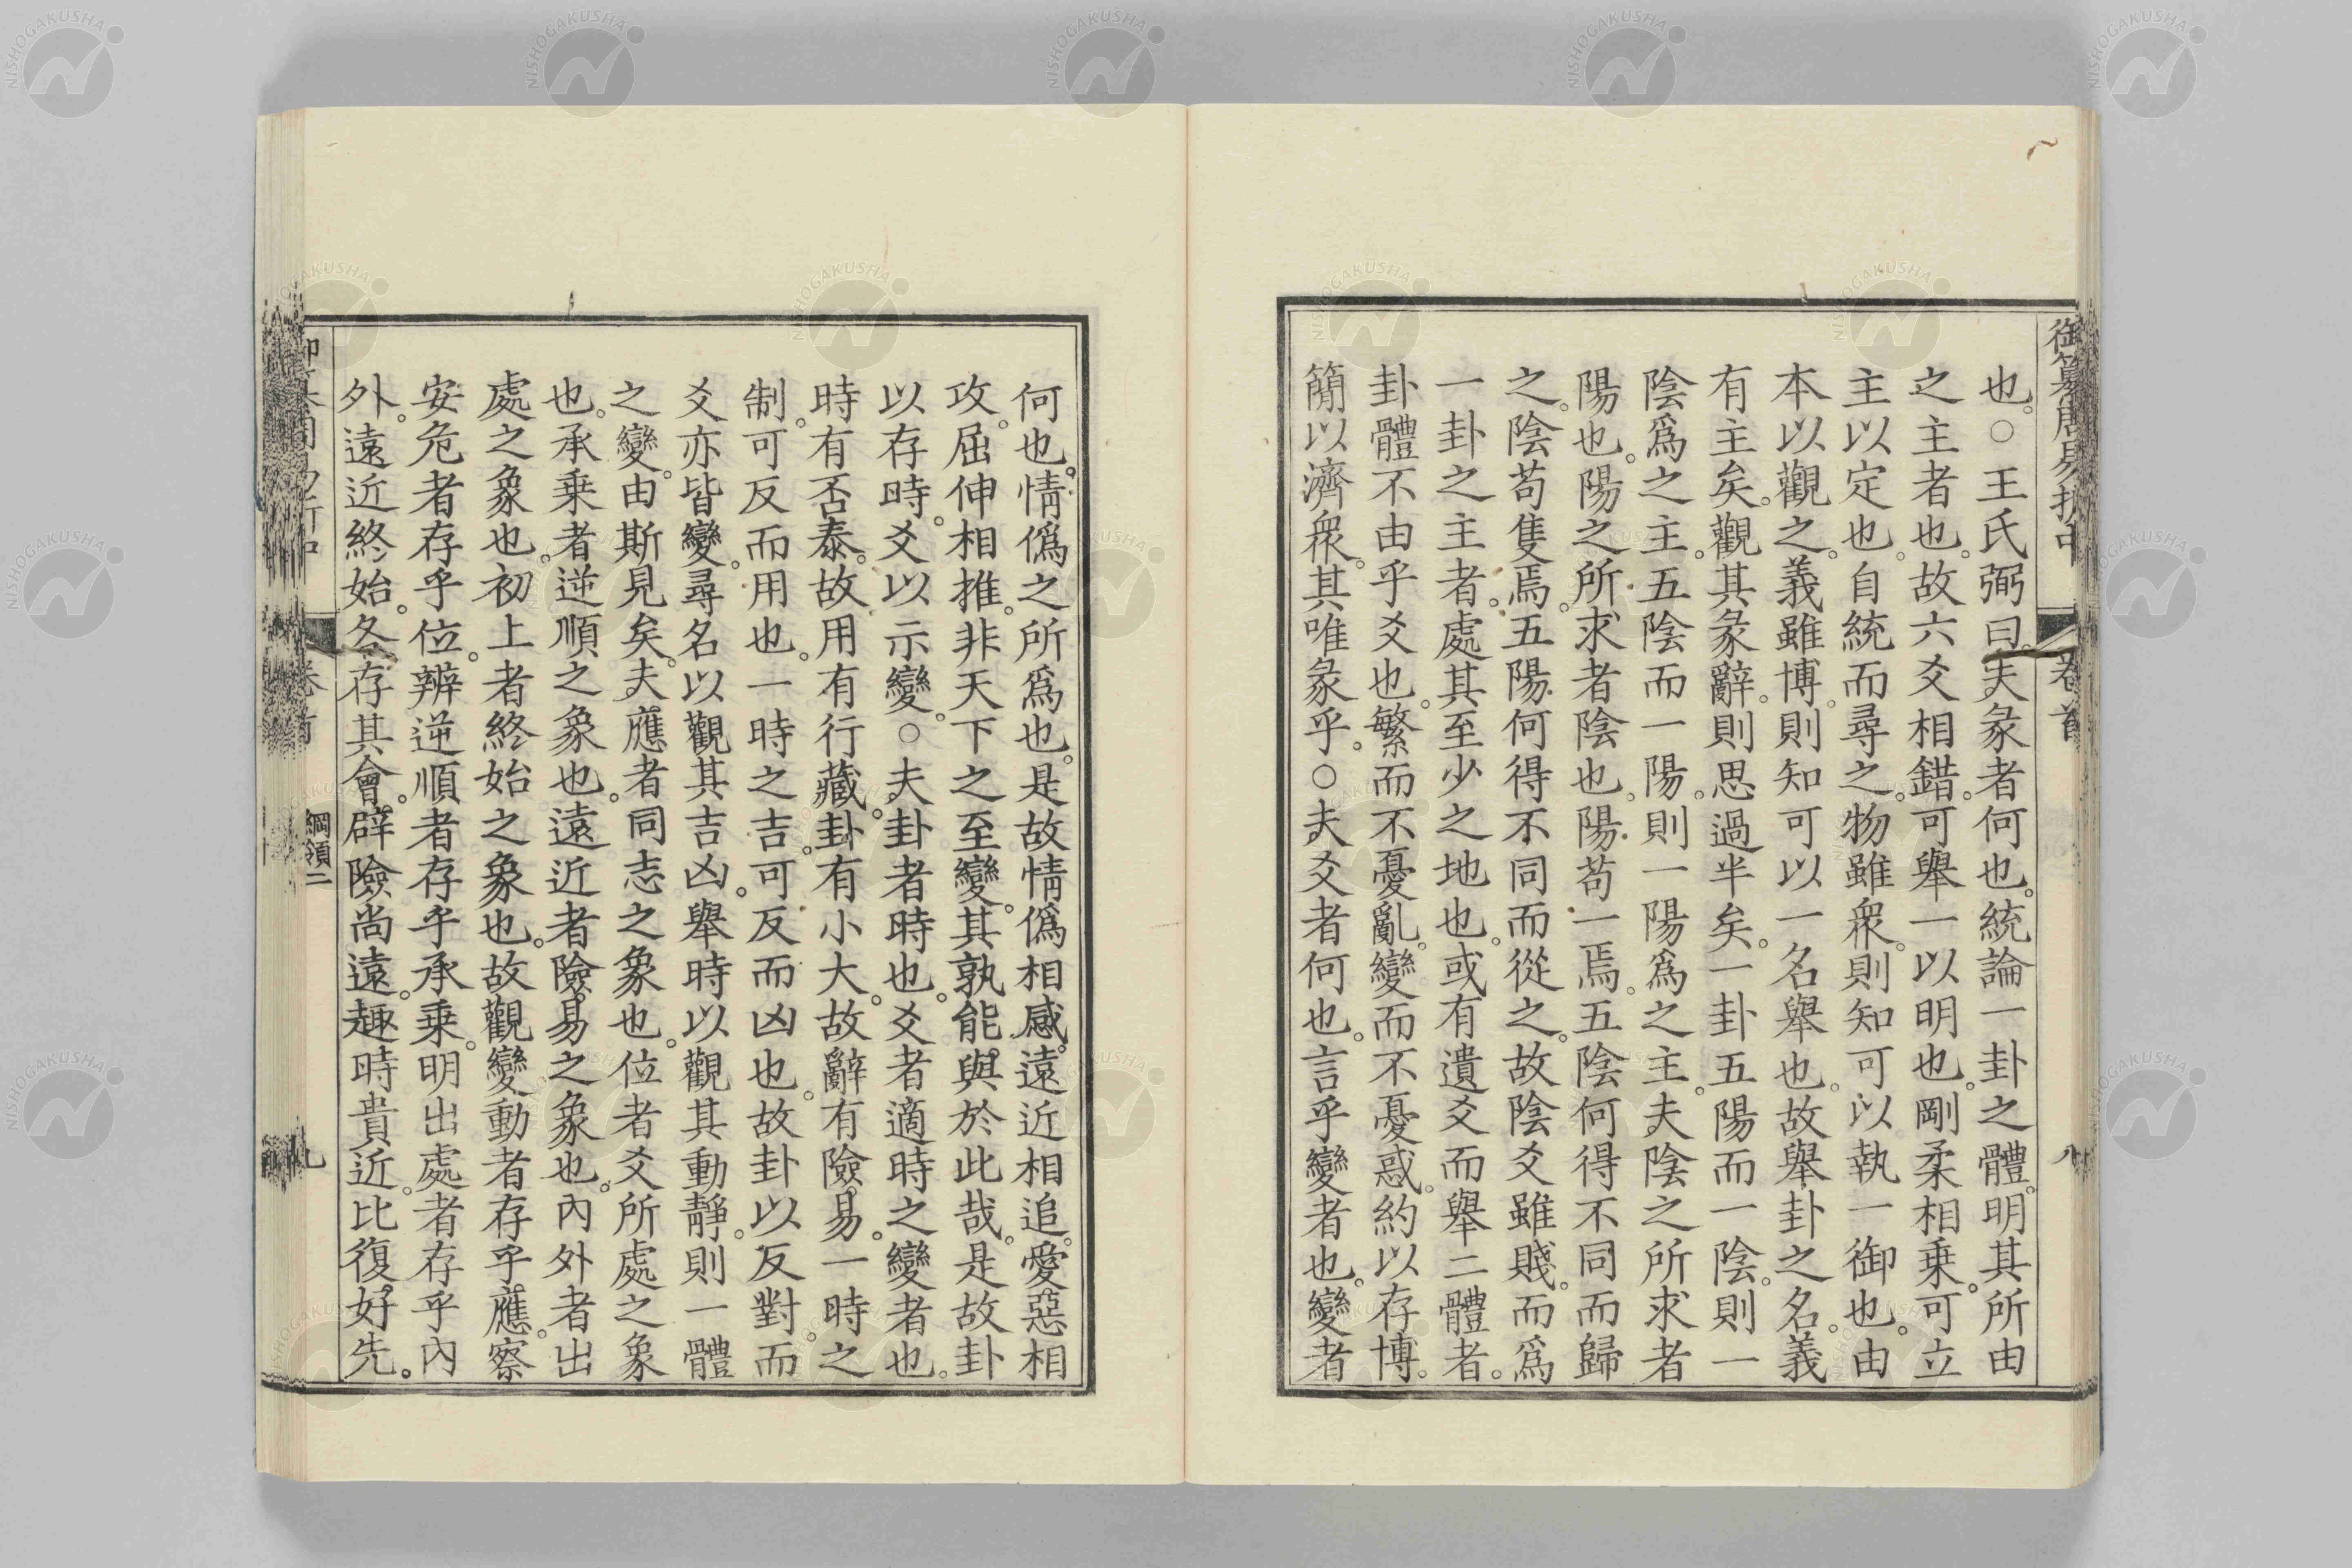 御纂周易折中 卷首 八
也。○王氏弼曰。夫彖者何也。統論一卦之體。明其所由
之主者也。故六爻相錯。可舉一以明也。剛柔相乘。可立
主以定也。自統而尋之。物雖衆。則知可以執一御也。由
本以觀之。義雖博。則知可以一名舉也。故舉卦之名。義
有主矣。觀其彖辭。則思過半矣。一卦五陽而一陰。則一
陰爲之主。五陰而一陽。則一陽爲之主。夫陰之所求者
陽也。陽之所求者陰也。陽苟一焉。五陰何得不同而歸
之。陰苟隻焉。五陽何得不同而從之。故陰爻雖賤。而爲
一卦之主者。處其至少之地也。或有遺爻而舉二體者。
卦體不由乎爻也。繁而不憂亂。變而不憂惑。約以存博。
簡以濟衆。其唯彖乎。○夫爻者何也。言乎變者也。變者
何也。情僞之所爲也。是故情僞相感。遠近相追。愛惡相
攻。屈伸相推。非天下之至變。其孰能與於此哉。是故卦
以存時。爻以示變。○夫卦者時也。爻者適時之變者也。
時有否泰。故用有行藏。卦有小大。故辭有險易。一時之
制。可反而用也。一時之吉。可反而凶也。故卦以反對。而
爻亦皆變。尋名以觀其吉凶。舉時以觀其動靜。則一體
之變。由斯見矣。夫應者同志之象也。位者爻所處之象
也。承乘者。逆順之象也。遠近者險易之象也。內外者出
處之象也。初上者終始之象也。故觀變動者存乎應。察
安危者存乎位。辨逆順者存乎承乘。明出處者存乎內
外。遠近終始。各存其會。辟險尚遠。趣時貴近。比復好先。
卷首 綱領二 九
NISHOGAKUSHA
NISHOGAKUSHA
NISHOGAKUSHA
NISHOGAKUSHA
NISHOGAKUSHA